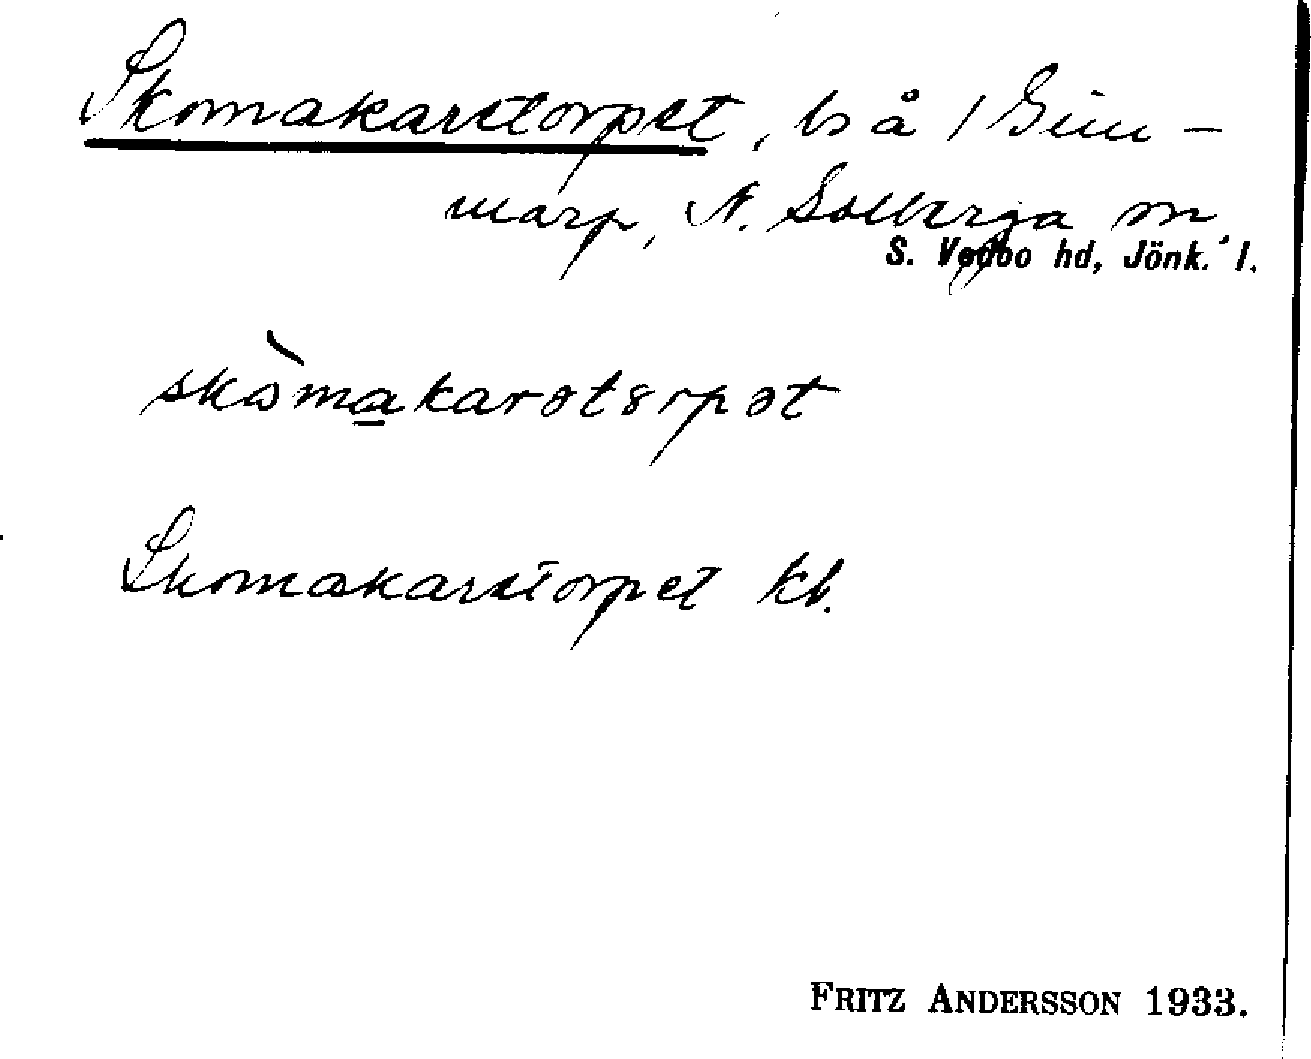 Skomakaretorpet, bs å 1 Gim-
marp, N. Solberga sn
S. Vedbo hd, Jönk. l.
skòmakarətorpət
Skomakaretorpet kb.
FRITZ ANDERSSON 1933.